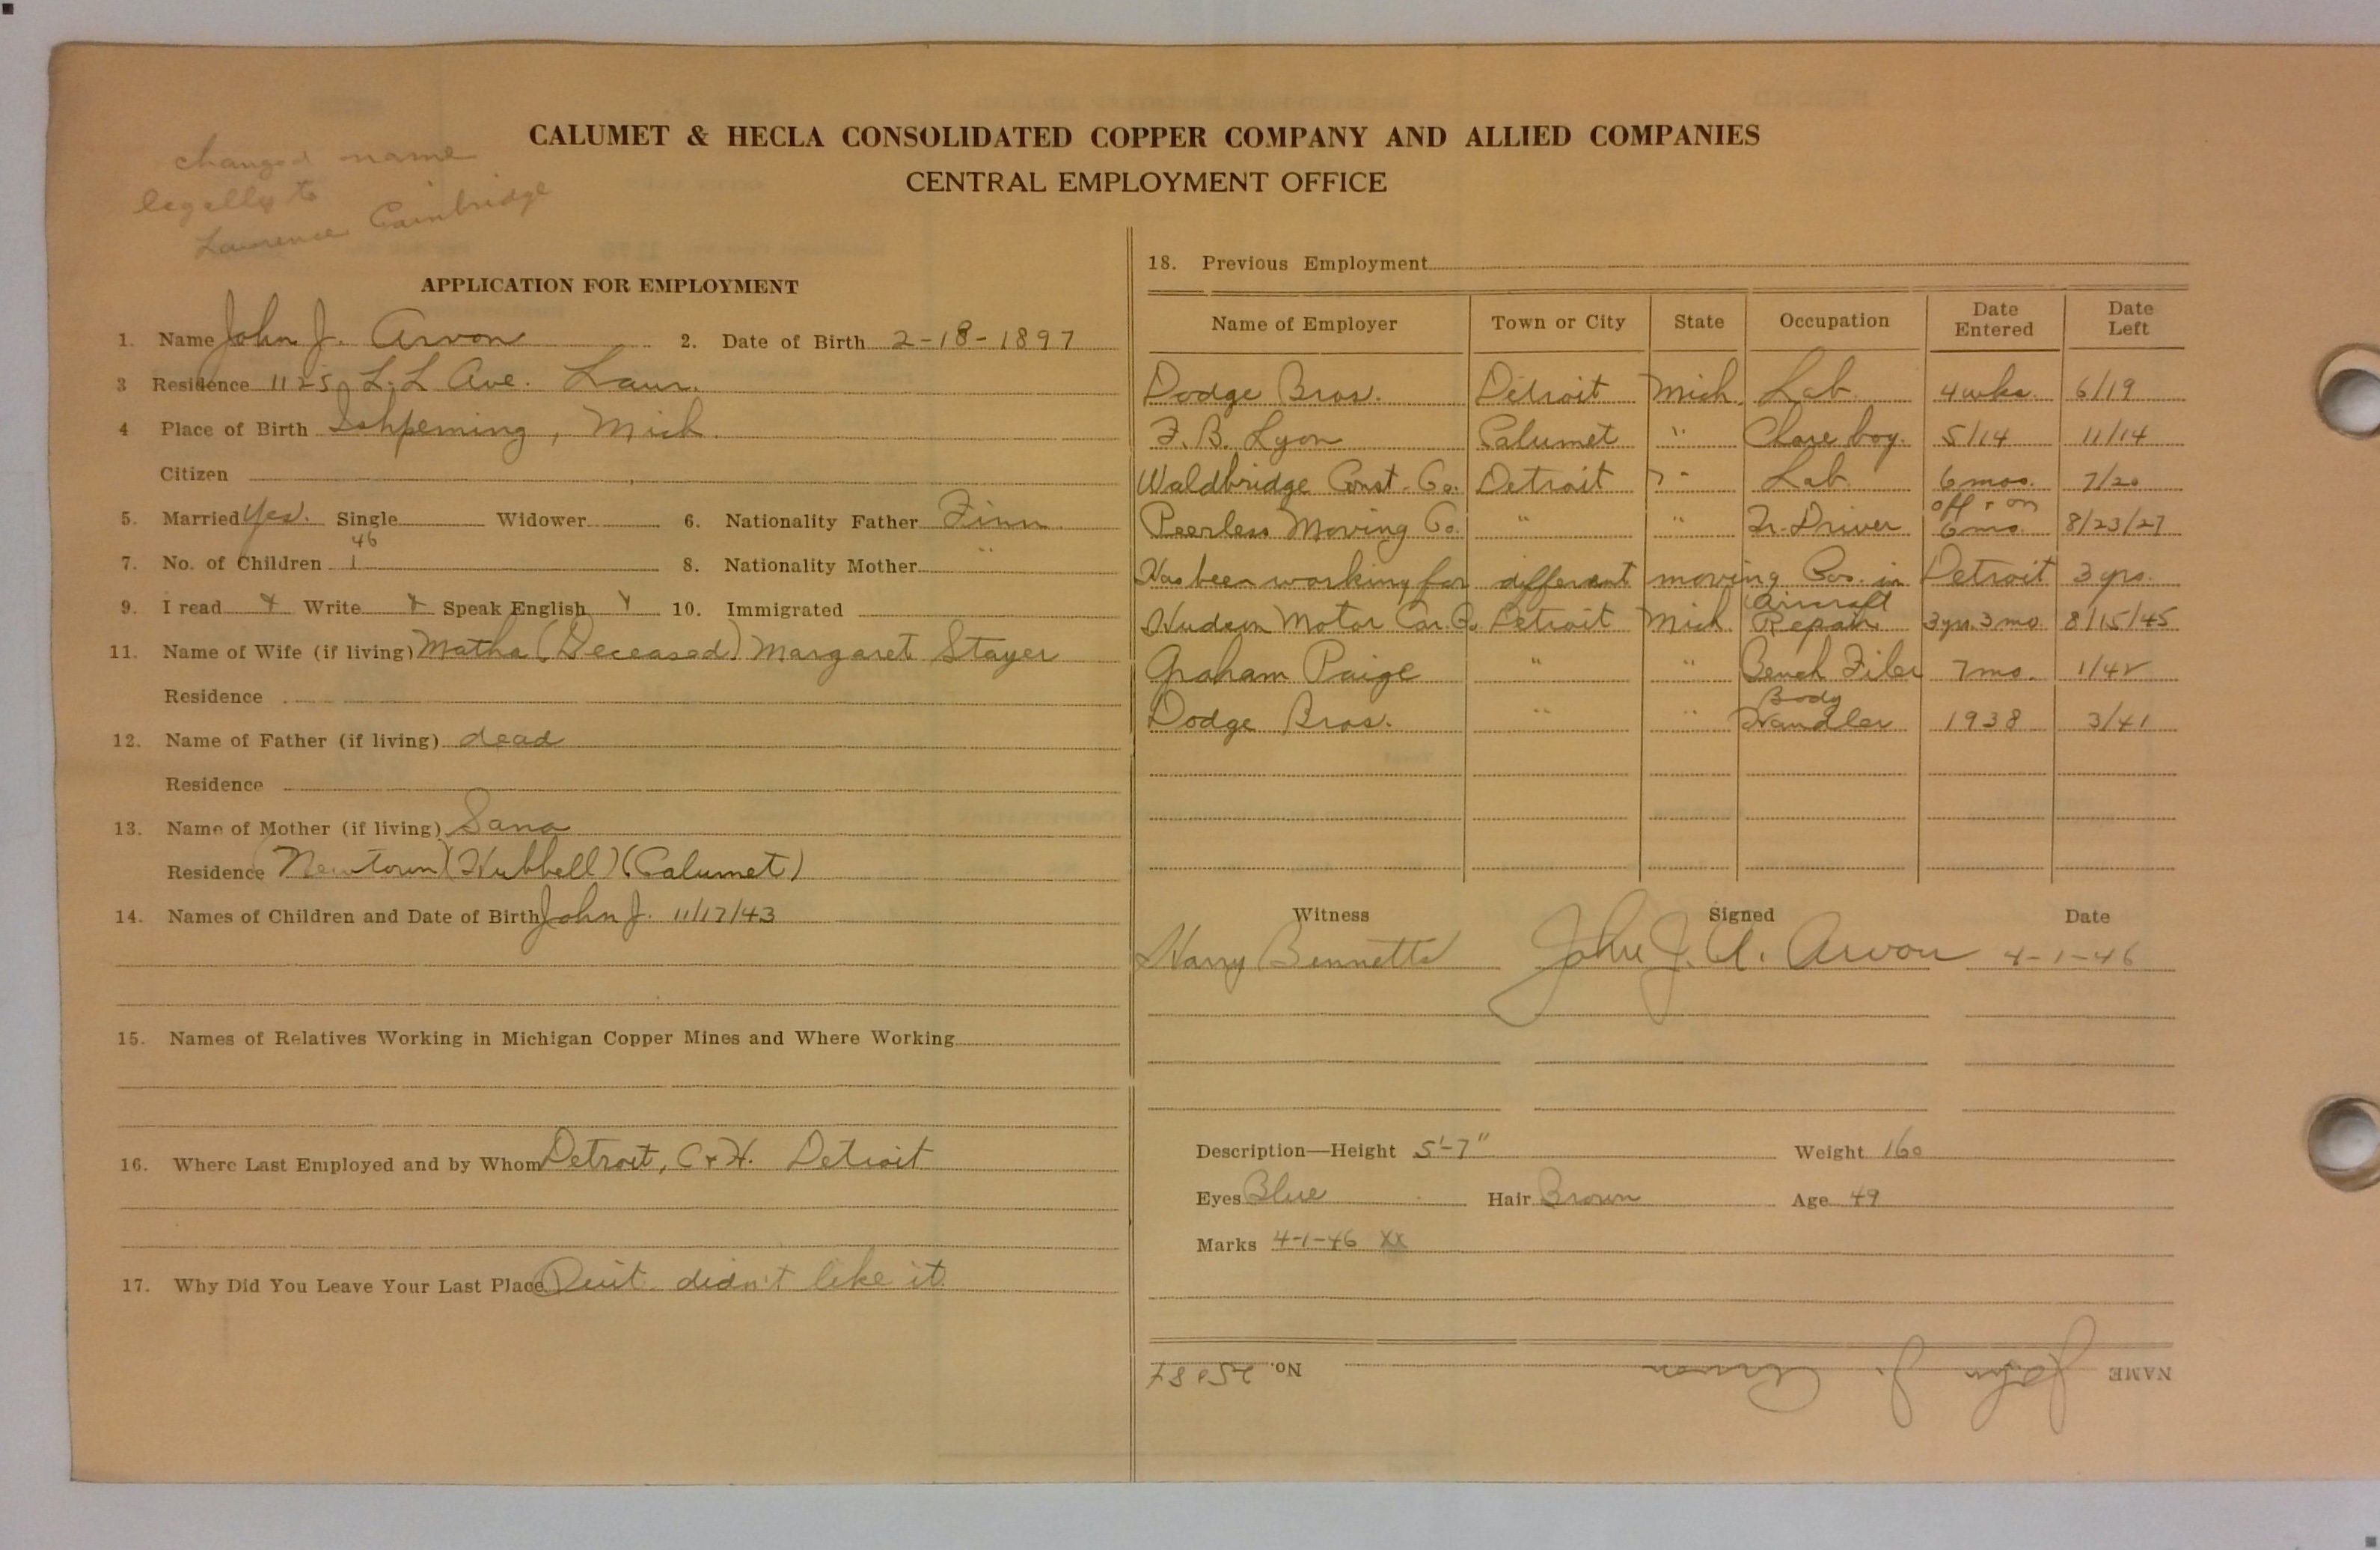 changed name
legally to
Lawrence Cambridge
CALUMET & HECLA CONSOLIDATED COPPER COMPANY AND ALLIED COMPANIES
CENTRAL EMPLOYMENT OFFICE
APPLICATION FOR EMPLOYMENT
1. Name John J. Arvon 2. Date of Birth 2-18-1897
3 Residence 1125 L.L Ave. Laur.
4 Place of Birth Ishpeming, Mich.
Citizen
5. Married Yes. Single Widower 6. Nationality Father Finn
46
7. No. of Children 1 8. Nationality Mother "
9. I read Write Speak English 10. Immigrated
11. Name of Wife (if living) Matha (Deceased) Margaret Stayer
Residence
12. Name of Father (if living) dead
Residence
13. Name of Mother (if living) Sana
Residence Newtown (Hubbell) (Calumet)
14. Names of Children and Date of Birth John J. 11/17/43
15. Names of Relatives Working in Michigan Copper Mines and Where Working
16. Where Last Employed and by Whom Detroit, C & H. Detroit
17. Why Did You Leave Your Last Place Quit didn't like it.
18. Previous Employment
Name of Employer Town or City State Occupation Date Entered Date Left
Dodge Bros. Detroit Mich. Lab. 4 wks. 6/19
F. B. Lyon Calumet " Chore boy. 5/14 11/14
Waldbridge Const. Co. Detroit " Lab. 6 mos. 7/20
off & on
Peerless Moving Co. " " Tr. Driver 6 mo. 8/23/27
Has been working for different moving Cos. in Detroit 3 yrs.
Aircraft
Hudson Motor Car Co. Detroit Mich. Repair 3 yrs. 3 mo. 8/15/45
Graham Paige " " Bench Filer 7 mo. 1/42
Body
Dodge Bros. " " Handler 1938 3/41
Witness Signed Date
Harry Bennetts John J. A. Arvon 4-1-46
Description—Height 5'-7" Weight 160
Eyes Blue Hair Brown Age 49
Marks 4-1-46 XX
NAME John J. Arvon No. 25087